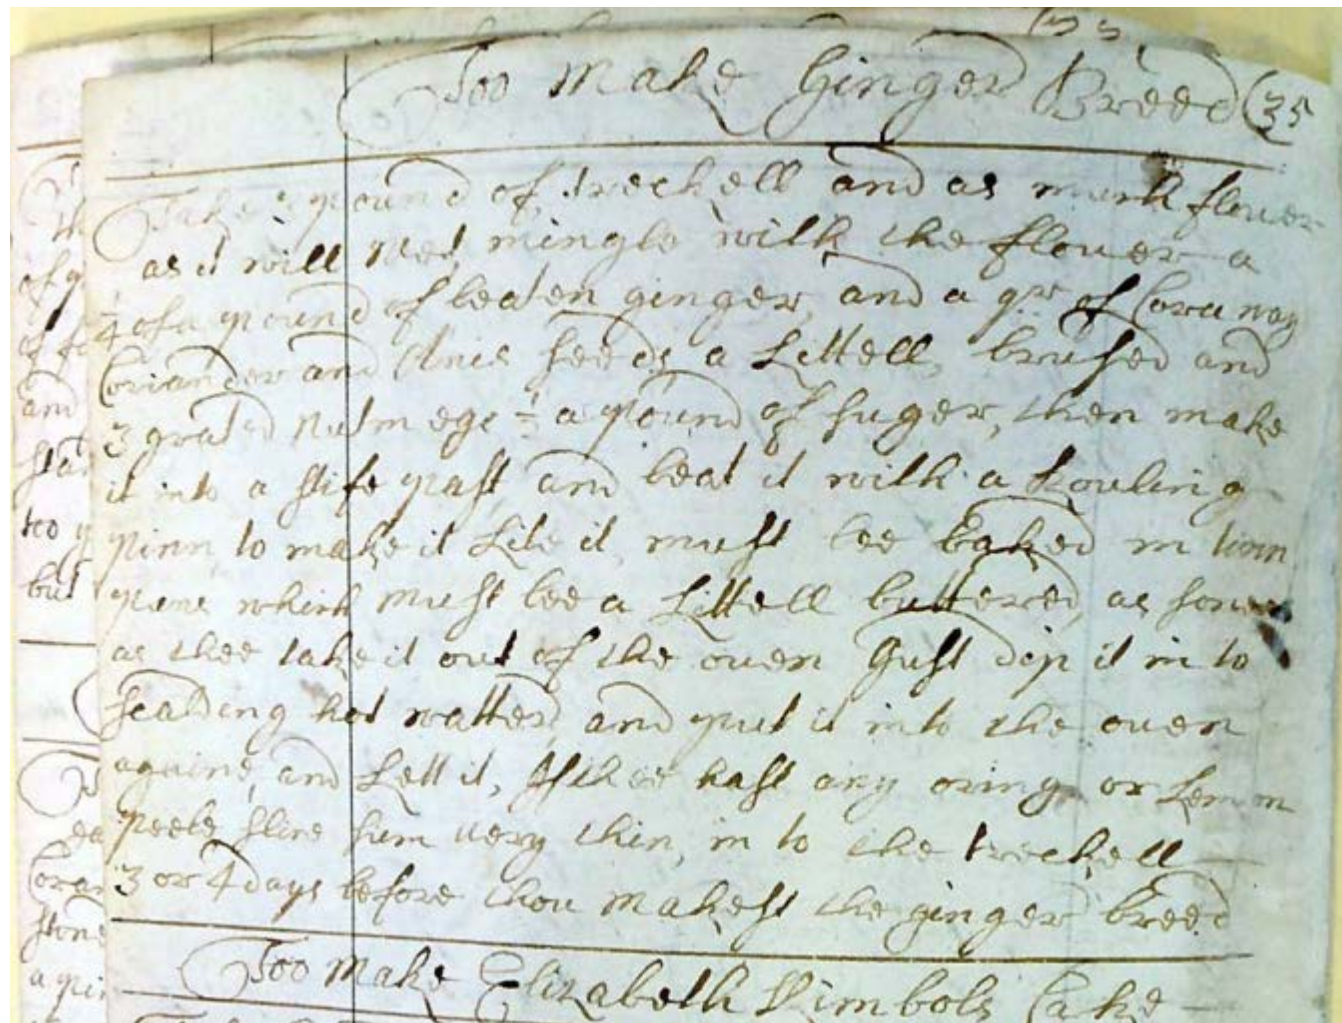 Too Make Ginger Breed (35
Take a pound of treckell and as much flower
as it will wet mingle with the flower a
1/4 of a pound of beaten ginger, and a qr of Cora way
Coriander and Anis seeds a Littell brused and
3 grated nutmegs 1/2 a pound of suger, then make
it into a stife past and beat it with a Rouling
pinn to make it Lite it must bee baked in tinn
pans which must bee a Littell buttered as sone
as thee take it out of the oven Just dip it in to
scalding hot watter and put it into the oven
againe, and Lett it, If thee hast any oring or Lemon
peele slice sum very thin, in to the treckell
3 or 4 days before thou makest the ginger breed
Too Make Elizabeth Cake